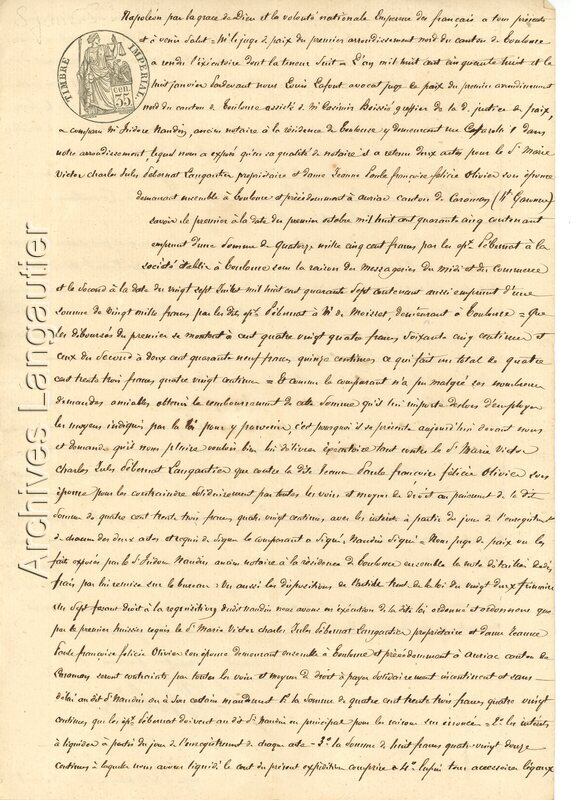 Napoléon par la grace de Dieu et la volonté nationale Empereur des français a tous présents
et à venir Salut = Mr le juge de paix du premier arrondissement nord du canton de Toulouse
a rendu l'exécutoire dont la teneur Suit = L'an mil huit cent cinquante huit et le
huit janvier pardevant nous Louis Lafont avocat juge de paix du premier arrondissement
nord du canton de Toulouse assisté de Mr Casimir Boissié greffier de la d. justice de paix,
TIMBRE IMPERIAL
35 cen.
a comparu Mr Isidore Naudin, ancien notaire à la résidence de Toulouse y demeurant rue 1 dans
notre arrondissement, lequel nous a exposé qu'en sa qualité de notaire il a retenu deux actes pour le Sr Marie
Victor Charles Jules Pébernat Langautier propriétaire et dame Jeanne Paule françoise félicie Olivier son épouse
demeurant ensemble à Toulouse et précédemment à auriac canton de Caraman (hte Garonne)
savoir le premier à la date du premier octobre mil huit cent quarante cinq contenant
emprunt d'une somme de quatorze mille cinq cent francs par les ép. Pébernat à la
société établie à Toulouse sous la raison des Messageries du midi et du Commerce
et le Second à la date du vingt sept Juillet mil huit cent quarante Sept contenant aussi emprunt d'une
somme de vingt mille francs par les dits ép. Pébernat à Mr de Moisset, demeurant à Toulouse = Que
les déboursés du premier se montent à cent quatre vingt quatre francs soixante cinq centimes et
ceux du Second à deux cent quarante neuf francs quinze centimes ce qui fait un total de quatre
cent trente trois francs quatre vingt centimes = Et comme le comparant n'a pu malgré ses nombreuses
demandes amiables obtenir le remboursement de cette Somme qu'il lui importe dès lors d'employer
les moyens indiqués par la loi pour y parvenir, c'est pourquoi il se présente aujourd'hui devant nous
et demande qu'il nous plaise vouloir bien lui délivrer exécutoire tant contre le Sr Marie Victor
Charles Jules Pébernat Langautier que contre la dite Jeanne Paule françoise félicie Olivier son
épouse pour les contraindre solidairement par toutes les voies et moyens de droit au paiement de la dite
Somme de quatre cent trente trois francs quatre vingt centimes avec les intérêts à partir du jour de l'enregistrement
de chacun des deux actes et requis de Signer le comparant a Signé, Naudin Signé = Nous juge de paix vu les
faits exposés par le Sr Isidore Naudin ancien notaire à la résidence de Toulouse ensemble la note détaillée desdits
frais, par lui remise sur le bureau = Vu aussi les dispositions de l'article trente de la loi du vingt deux frimaire
an Sept faisant droit à la requisition dudit Naudin nous avons en exécution de la dite loi ordonné et ordonnons que
par le premier huissier requis le Sr Marie Victor Charles Jules Pébernat Langautier propriétaire et dame Jeanne
Paule françoise félicie Olivier son épouse demeurant ensemble à Toulouse et précédemment à auriac canton de
Caraman seront contraints par toutes les voies et moyens de droit à payer solidairement incontinent et sans
délai au dit Sr Naudin ou à Son certain mandement 1° la Somme de quatre cent trente trois francs quatre vingt
centimes que les ép. Pébernat doivent au dit Sr Naudin en principal pour les raisons sus énoncées = 2° les intérêts
à liquider à partir du jour de l'enregistrement de chaque acte = 3° la Somme de huit francs quatre vingt douze
centimes à laquelle nous avons liquidé le coût du présent expédition comprise = 4° Enfin tous accessoires légaux
Archives Langautier